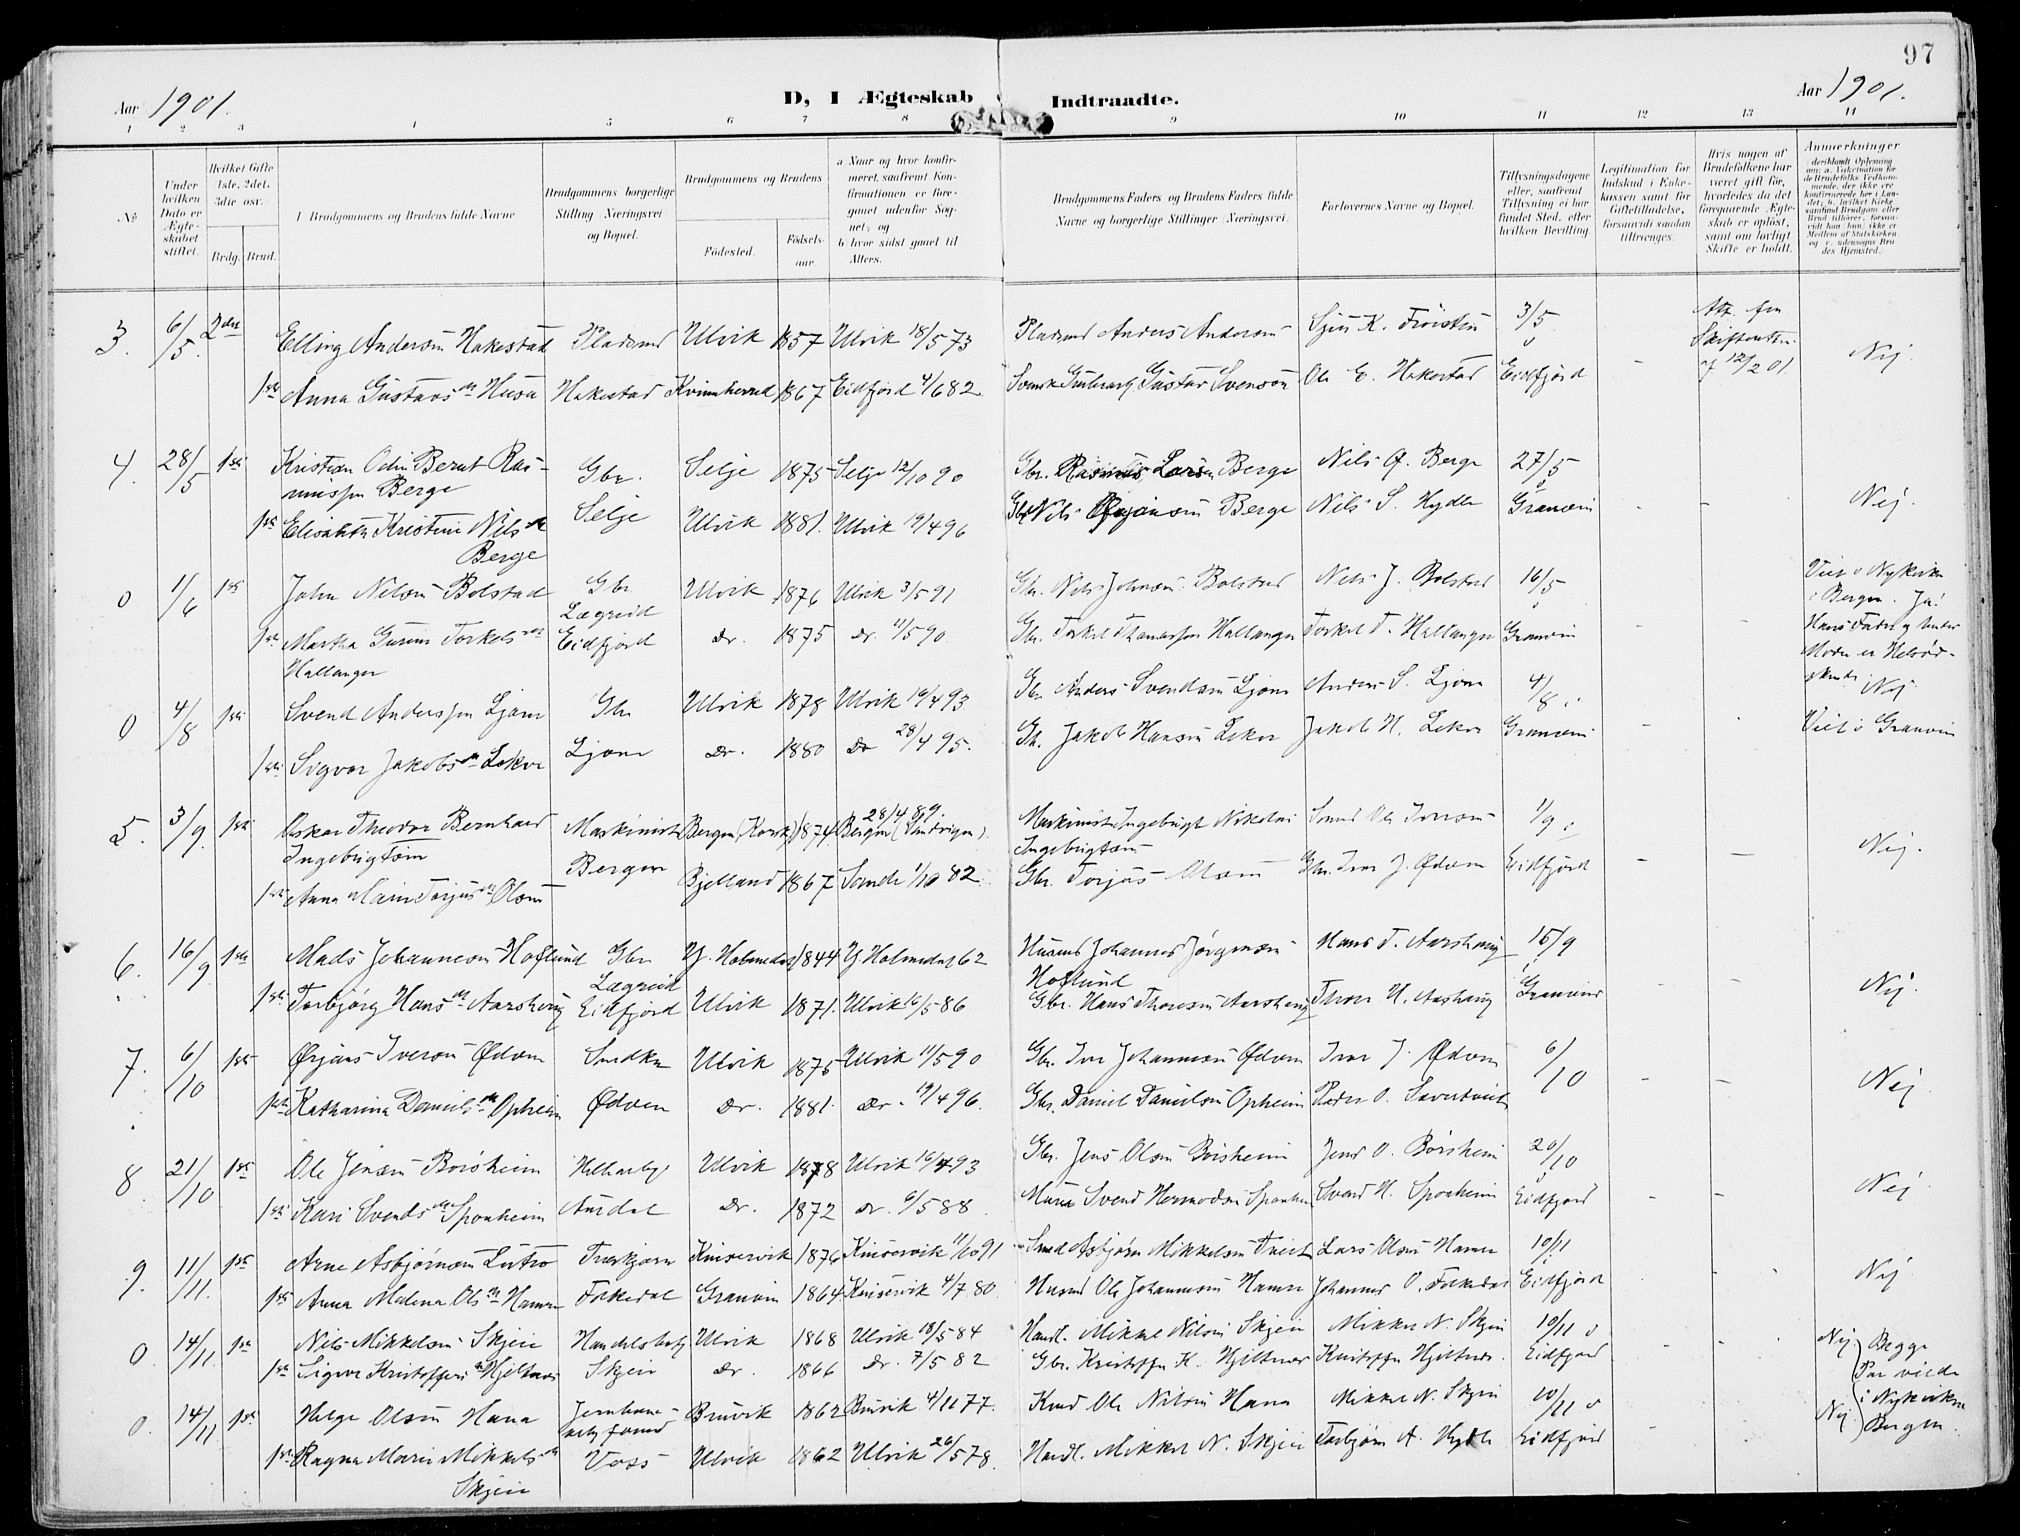 97
Aar 1901.
D, I Ægteskab Indtraadte.
Aar 1901.
1 2 3 4 5 6 7 8 9 10 11 12 13 14
No
Under hvilken Dato er Ægteskabet stiftet.
Hvilket Gifte 1ste, 2det, 3die osv.
Brdg. Brud.
I Brudgommens og Brudens fulde Navne
Brudgommens borgerlige Stilling (Næringsvei) og Bopæl.
Brudgommens og Brudens
Fødested.
Fødselsaar
a Naar og hvor konfirmeret, saafremt Konfirmationen er foregaaet udenfor Sognet; og
b hvor sidst gaaet til Alters.
Brudgommens Faders og Brudens Faders fulde Navne og borgerlige Stillinger (Næringsvei)
Forlovernes Navne og Bopæl.
Tillysningsdagene eller, saafremt Tillysning ei har fundet Sted, efter hvilken Bevilling.
Legitimation for Indskud i Enkekassen samt for Giftetilladelse, forsaavidt saadan tiltrænges.
Hvis nogen af Brudefolkene har været gift før, hvorledes da det foregaaende Ægteskab er opløst, samt om lovligt Skifte er holdt.
Anmerkninger
3. 6/5. 2det Elling Andersen Hakestad Pladsmd Ulvik 1857 Ulvik 18/5 73 Pladsmd Anders Andersen Sjur K. Tveiten 3/5 Att. fra Skifteretten af 12/2 01. Nej.
1ste Anna Gustavs dtr Husa Hakestad Kvinnherred 1867 Eidfjord 4/6 82 Svensk Gustav Svenson Ole E. Hakestad Eidfjord -
4. 28/5 1ste Kristian Odin Bernt Rasmussen Berge Gbr. Selje Selje 1875 Selje 12/10 90 Gbr. Rasmus Larsen Berge Nils Ø. Berge 27/5 Nej.
1ste Elisabeth Kristine Nils dtr Berge Ulvik 1881. Ulvik 19/4 96 Gbr Nils Ørjansen Berge Nils S. Hydle Granvin
0 1/6 1ste John Nilsen Bolstad Gbr Lægreid Eidfjord Ulvik 1876 Ulvik 3/5 91 Gbr. Nils Johnsen Bolstad Nils J. Bolstad 16/5 Viet i Nykirken i Bergen. Ja!
1ste Martha Gurine Torkels dtr Hallanger do. 1875 do. 11/5 90. Gbr. Torkel Thomassen Hallanger Torkel T. Hallanger Granvin Hans Fader og hendes Moder er Helsødskende. Nej.
0 4/8 1ste Svend Anderssen Ljone Gbr Ljone Ulvik 1878 Ulvik 19/4 93 Gbr Anders Svendsen Ljone Anders S. Ljone 4/8 Viet i Granvin
1ste Sigvor Jakobs dtr Lekve do. 1880 do 28/4 95. Gb. Jakob Hansen Lekve Jakob H. Lekve Granvin
5. 3/9. 1ste Oskar Theodor Bernhard Ingebrigtsen Maskinist Bergen Bergen (Korsk) 1874 Bergen (Sandvigen) 28/4 89. Maskinist Ingebrigt Nikolai Ingebrigtsen Smed Ole Iversen 1/9 Nej.
1ste Anna Marie Torjus dtr Olsen Bjelland 1867 Sande 1/10 82 Gbr. Torjus Olsen Gbr. Iver J. Ødven Eidfjord
6. 16/9 1ste Mads Johannesen Hoflund Gbr Lægreid Eidfjord Y. Holmedal 1844 Y Holmedal 62 Husmd Johannes Jørgensen Hoflund Hans T. Aarhaug 15/9 Nej.
1ste Torbjørg Hans dtr Ulvik 1871. Ulvik 16/5 86 Gbr. Hans Thoresen Thore H. Granvin
7. 6/10 1ste Ørjans Iversen Ødven Snedker Ødven Ulvik 1875 Ulvik 11/5 90 Gbr. Iver Johannesen Ødven Iver J. Ødven 6/10 Nej
1ste Katharina Daniels dtr Opheim do. 1881. do. 19/4 96. Gbr. Daniel Danielsen Opheim Peder O. Sævertveit
8 21/10 1ste Ole Jensen Børsheim Aurdal Ulvik 1878 Ulvik 16/4 93 Gbr. Jens Olsen Børsheim Jens O. Børsheim 20/10 Nej
1ste Kari Svends dtr Sponheim do. 1872 do. 6/5 88 Murer Svend Hermodsen Sponheim Svend H. Sponheim Eidfjord
9. 11/11. 1ste Arne Asbjørnsen Lutro Folkedal Kinservik 1876 Kinservik 11/10 91 Smed Asbjørn Mikkelsen Tveit Lars Olsen Hamre 10/11 Nej
1ste Anna Malena Ols dtr Hamre Granvin 1864 Kinservik 4/7 80. Husmd Ole Johannesen Hamre Johannes O. Folkedal Eidfjord
0. 14/11. 1ste Nils Mikkelsen Skjeie Handelsbetj Skjeie Ulvik 1868 Ulvik 18/5 84 Handl. Mikkel Nilsen Skjeie Mikkel N. Skjeie 10/11 Nej
1ste Sigvor Kristoffers dtr Hjeltnes do. 1866 do. 7/5 82 Gbr. Kristoffer K. Hjeltnes Kristoffer Hjeltnes. Eidfjord
0. 14/11 1ste Helge Olsen Hana Jernbanearbformd Voss Bruvik 1862 Bruvik 4/11 77. Ole Nilsen Hana Mikkel N. Skjeie 10/11 Nej
1ste Ragna Marie Mikkels dtr Skjeie Ulvik 1862 Ulvik 26/5 78. Handl. Mikkel N. Skjeie Torbjørn A. Hydle Eidfjord
Begge Par viede i Nykirken Bergen.